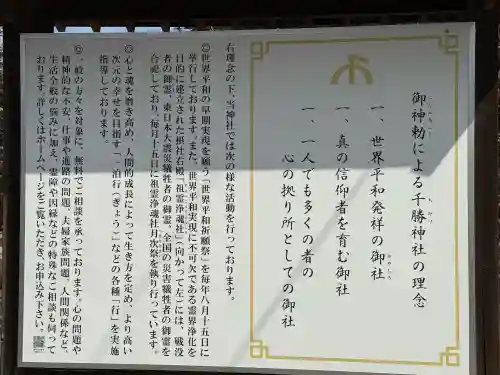 御神勅による千勝神社の理念
一、世界平和発祥の御社
一、真の信仰者を育む御社
一、一人でも多くの者の
心の拠り所としての御社
右理念の下、当神社では次の様な活動を行っております。
◎世界平和の早期実現を願う「世界平和祈願祭」を毎年八月十五日に
挙行しております。また、世界平和実現に不可欠である霊界浄化を
目的に建立された摂社右殿「祖霊浄魂社」(向かって左)には、戦没
者の御霊、東日本大震災犠牲者の御霊、全国の災害犠牲者の御霊を
合祀しており、毎月十五日に祖霊浄魂社月次祭を執り行っています。
◎心と魂を磨き高め、人間的成長によって生き方を定め、より高い
次元の幸せを目指す「一泊行(ぎょう)」などの各種「行」を実施
指導しております。
◎一般の方々を対象に、無料でご相談を承っております。心の問題や
精神的な不安、仕事や進路の問題、夫婦家族問題、人間関係など、
生活全般の悩みに加え、霊障や因縁などの特殊なご相談も伺って
おります。詳しくはホームページをご覧いただき、お申込み下さい。